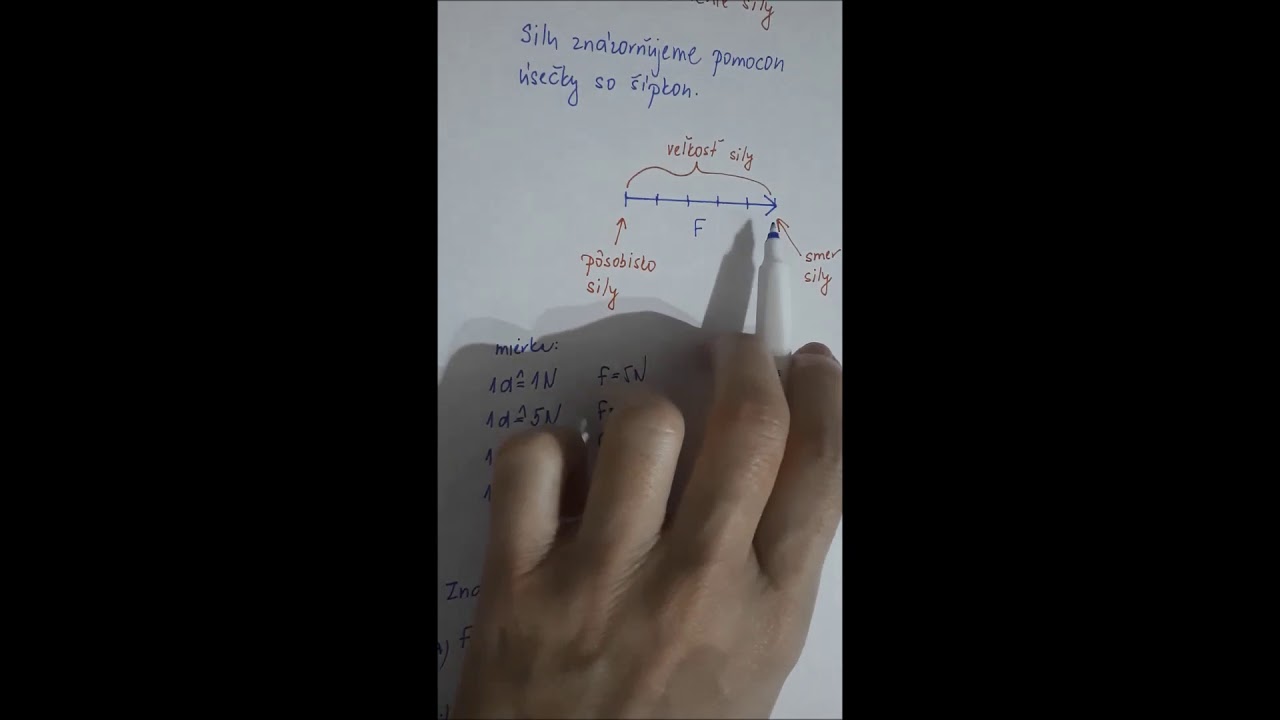 sily
Silu znázorňujeme pomocou
úsečky so šípkou.
veľkosť sily
F
pôsobisko
sily
smer
sily
mierka:
1d≙1N F=5N
1d≙5N F=
1
1
F